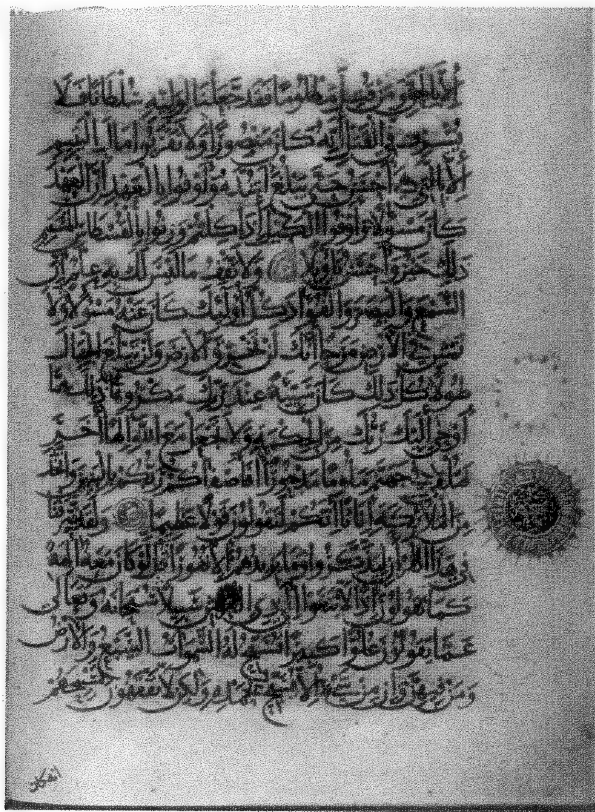 إلا بالحق ومن قتل مظلوما فقد جعلنا لوليه سلطانا فلا
يسرف في القتل إنه كان منصورا ولا تقربوا مال اليتيم
إلا بالتي هي أحسن حتى يبلغ أشده وأوفوا بالعهد إن العهد
كان مسئولا وأوفوا الكيل إذا كلتم وزنوا بالقسطاس المستقيم
ذلك خير وأحسن تأويلا ولا تقف ما ليس لك به علم إن
السمع والبصر والفؤاد كل أولئك كان عنه مسئولا ولا
تمش في الأرض مرحا إنك لن تخرق الأرض ولن تبلغ الجبال
طولا كل ذلك كان سيئه عند ربك مكروها ذلك مما
أوحى إليك ربك من الحكمة ولا تجعل مع الله إلها آخر
فتلقى في جهنم ملوما مدحورا أفأصفاكم ربكم بالبنين واتخذ
من الملائكة إناثا إنكم لتقولون قولا عظيما ولقد صرفنا
في هذا القرآن ليذكروا وما يزيدهم إلا نفورا قل لو كان معه آلهة
كما يقولون إذا لابتغوا إلى ذي العرش سبيلا سبحانه وتعالى
عما يقولون علوا كبيرا تسبح له السموات السبع والأرض
ومن فيهن وإن من شيء إلا يسبح بحمده ولكن لا تفقهون تسبيحهم
إنه كان